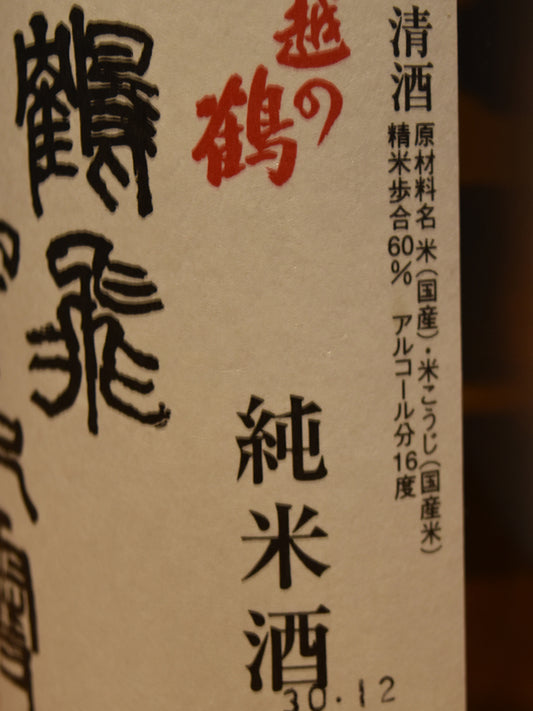 清酒
原材料名 米(国産)・米こうじ(国産米)
精米歩合60% アルコール分16度
越の鶴
純米酒
30.12
鶴飛